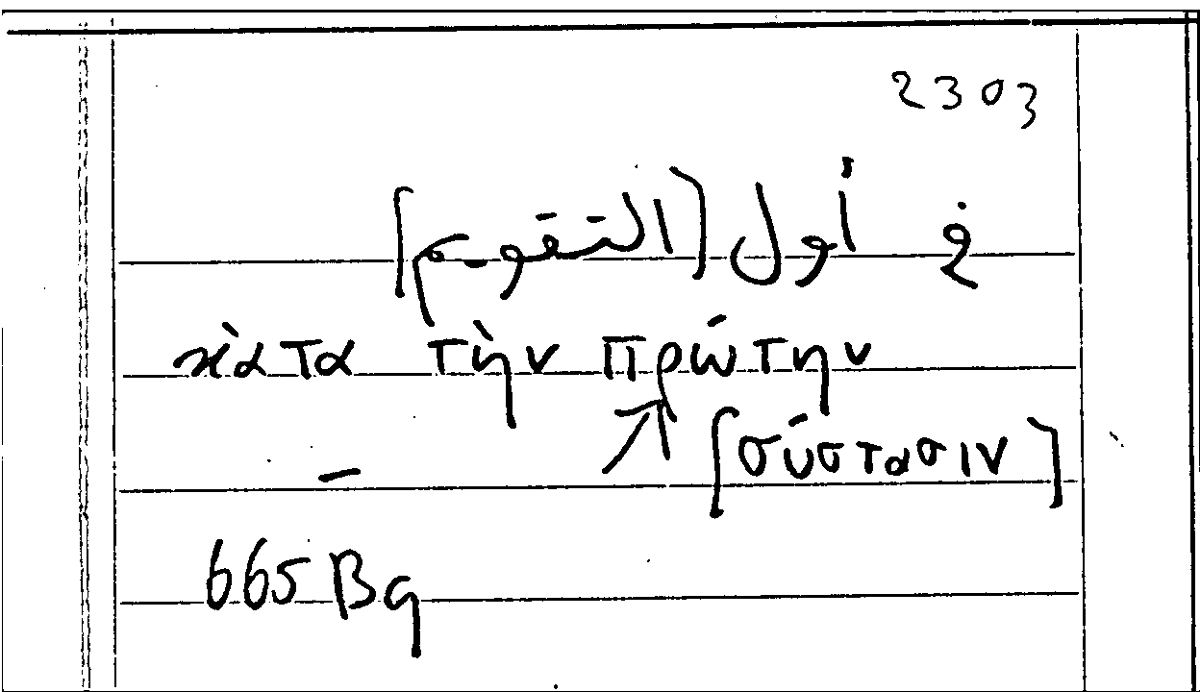 2303
في أول [التقويم]
κὰτα τὴν πρώτην
[σύστασιν]
665 B9